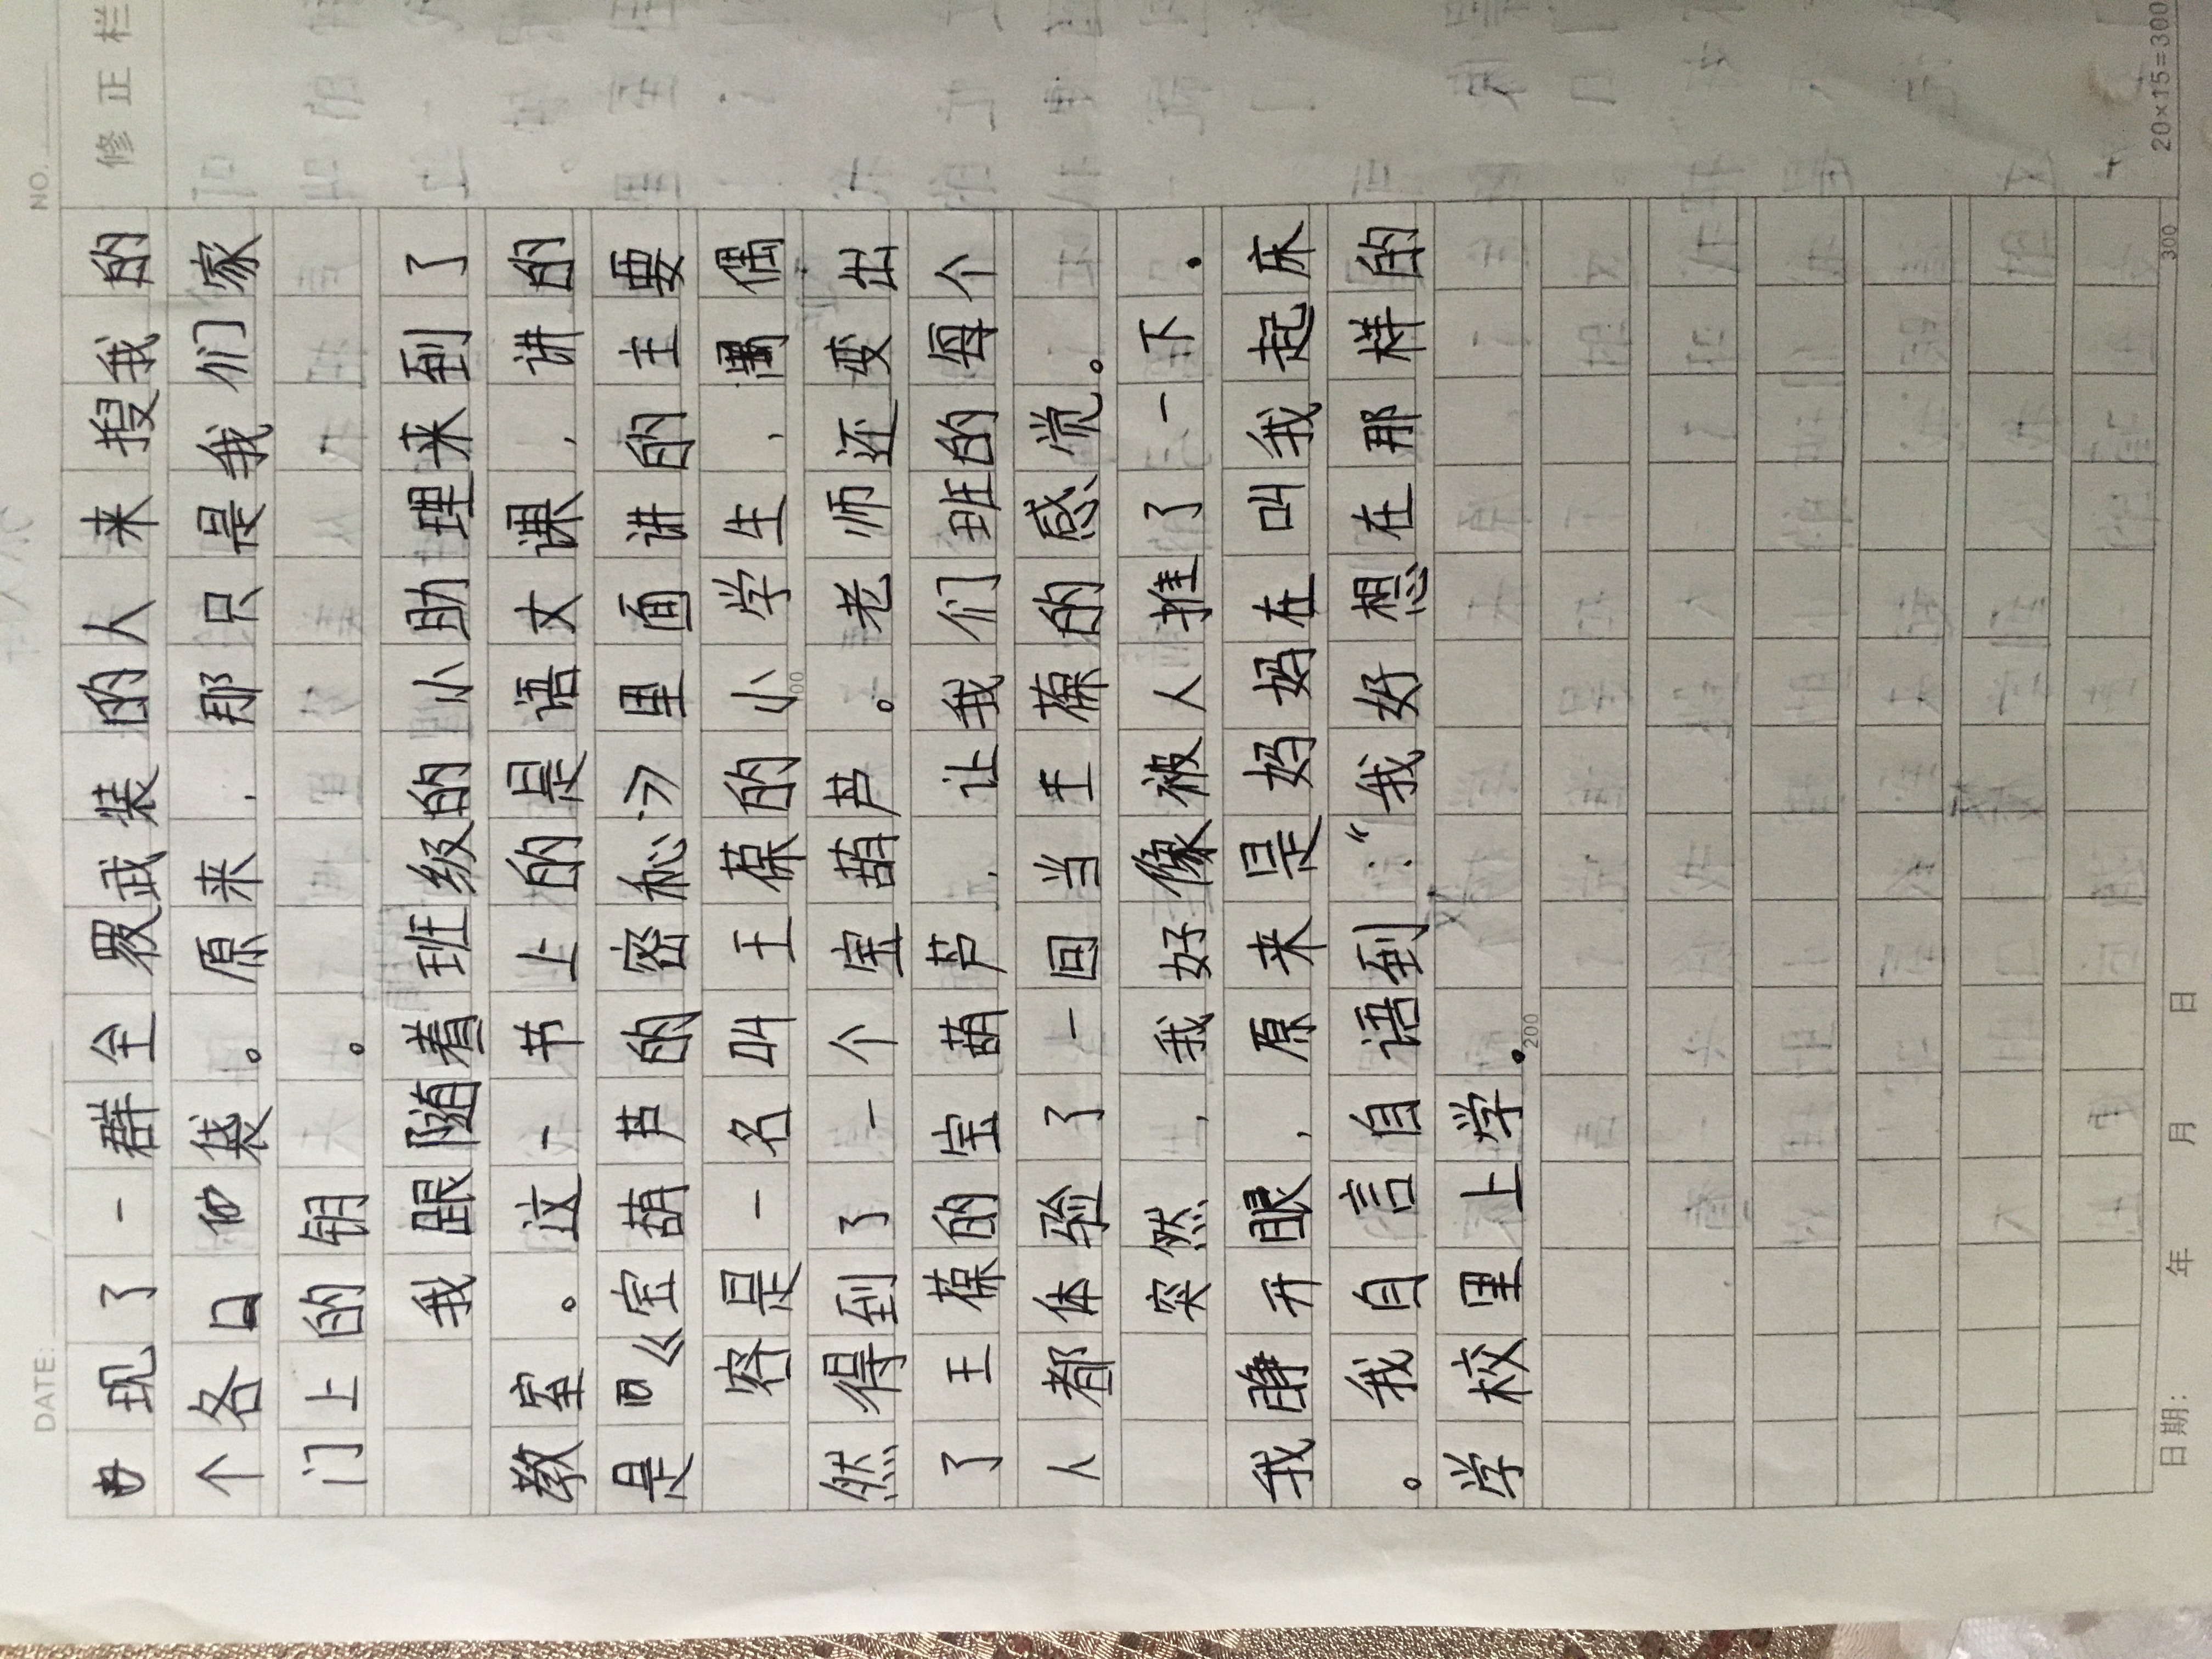 出现了一群全武装的人来搜我的
个各口袋。原来,那只是我们家
门上的钥。
我跟随着班级的小助理来到了
教室。这一节上的是语文课,讲的
是《宝葫芦的密秘》里面讲的主要
容是一名叫王葆的小学生,偶
然得到了一个宝葫芦。老师还变出
了王葆的宝葫芦,让我们班的每个
人都体验了一回当王葆的感觉。
突然,我好像被人推了一下.
我睁开眼,原来是妈妈在叫我起床
。我自言自语到:“我好想在那样的
学校里上学.
DATE: NO.
修正栏
100
200
300
20×15=300
日期: 年 月 日